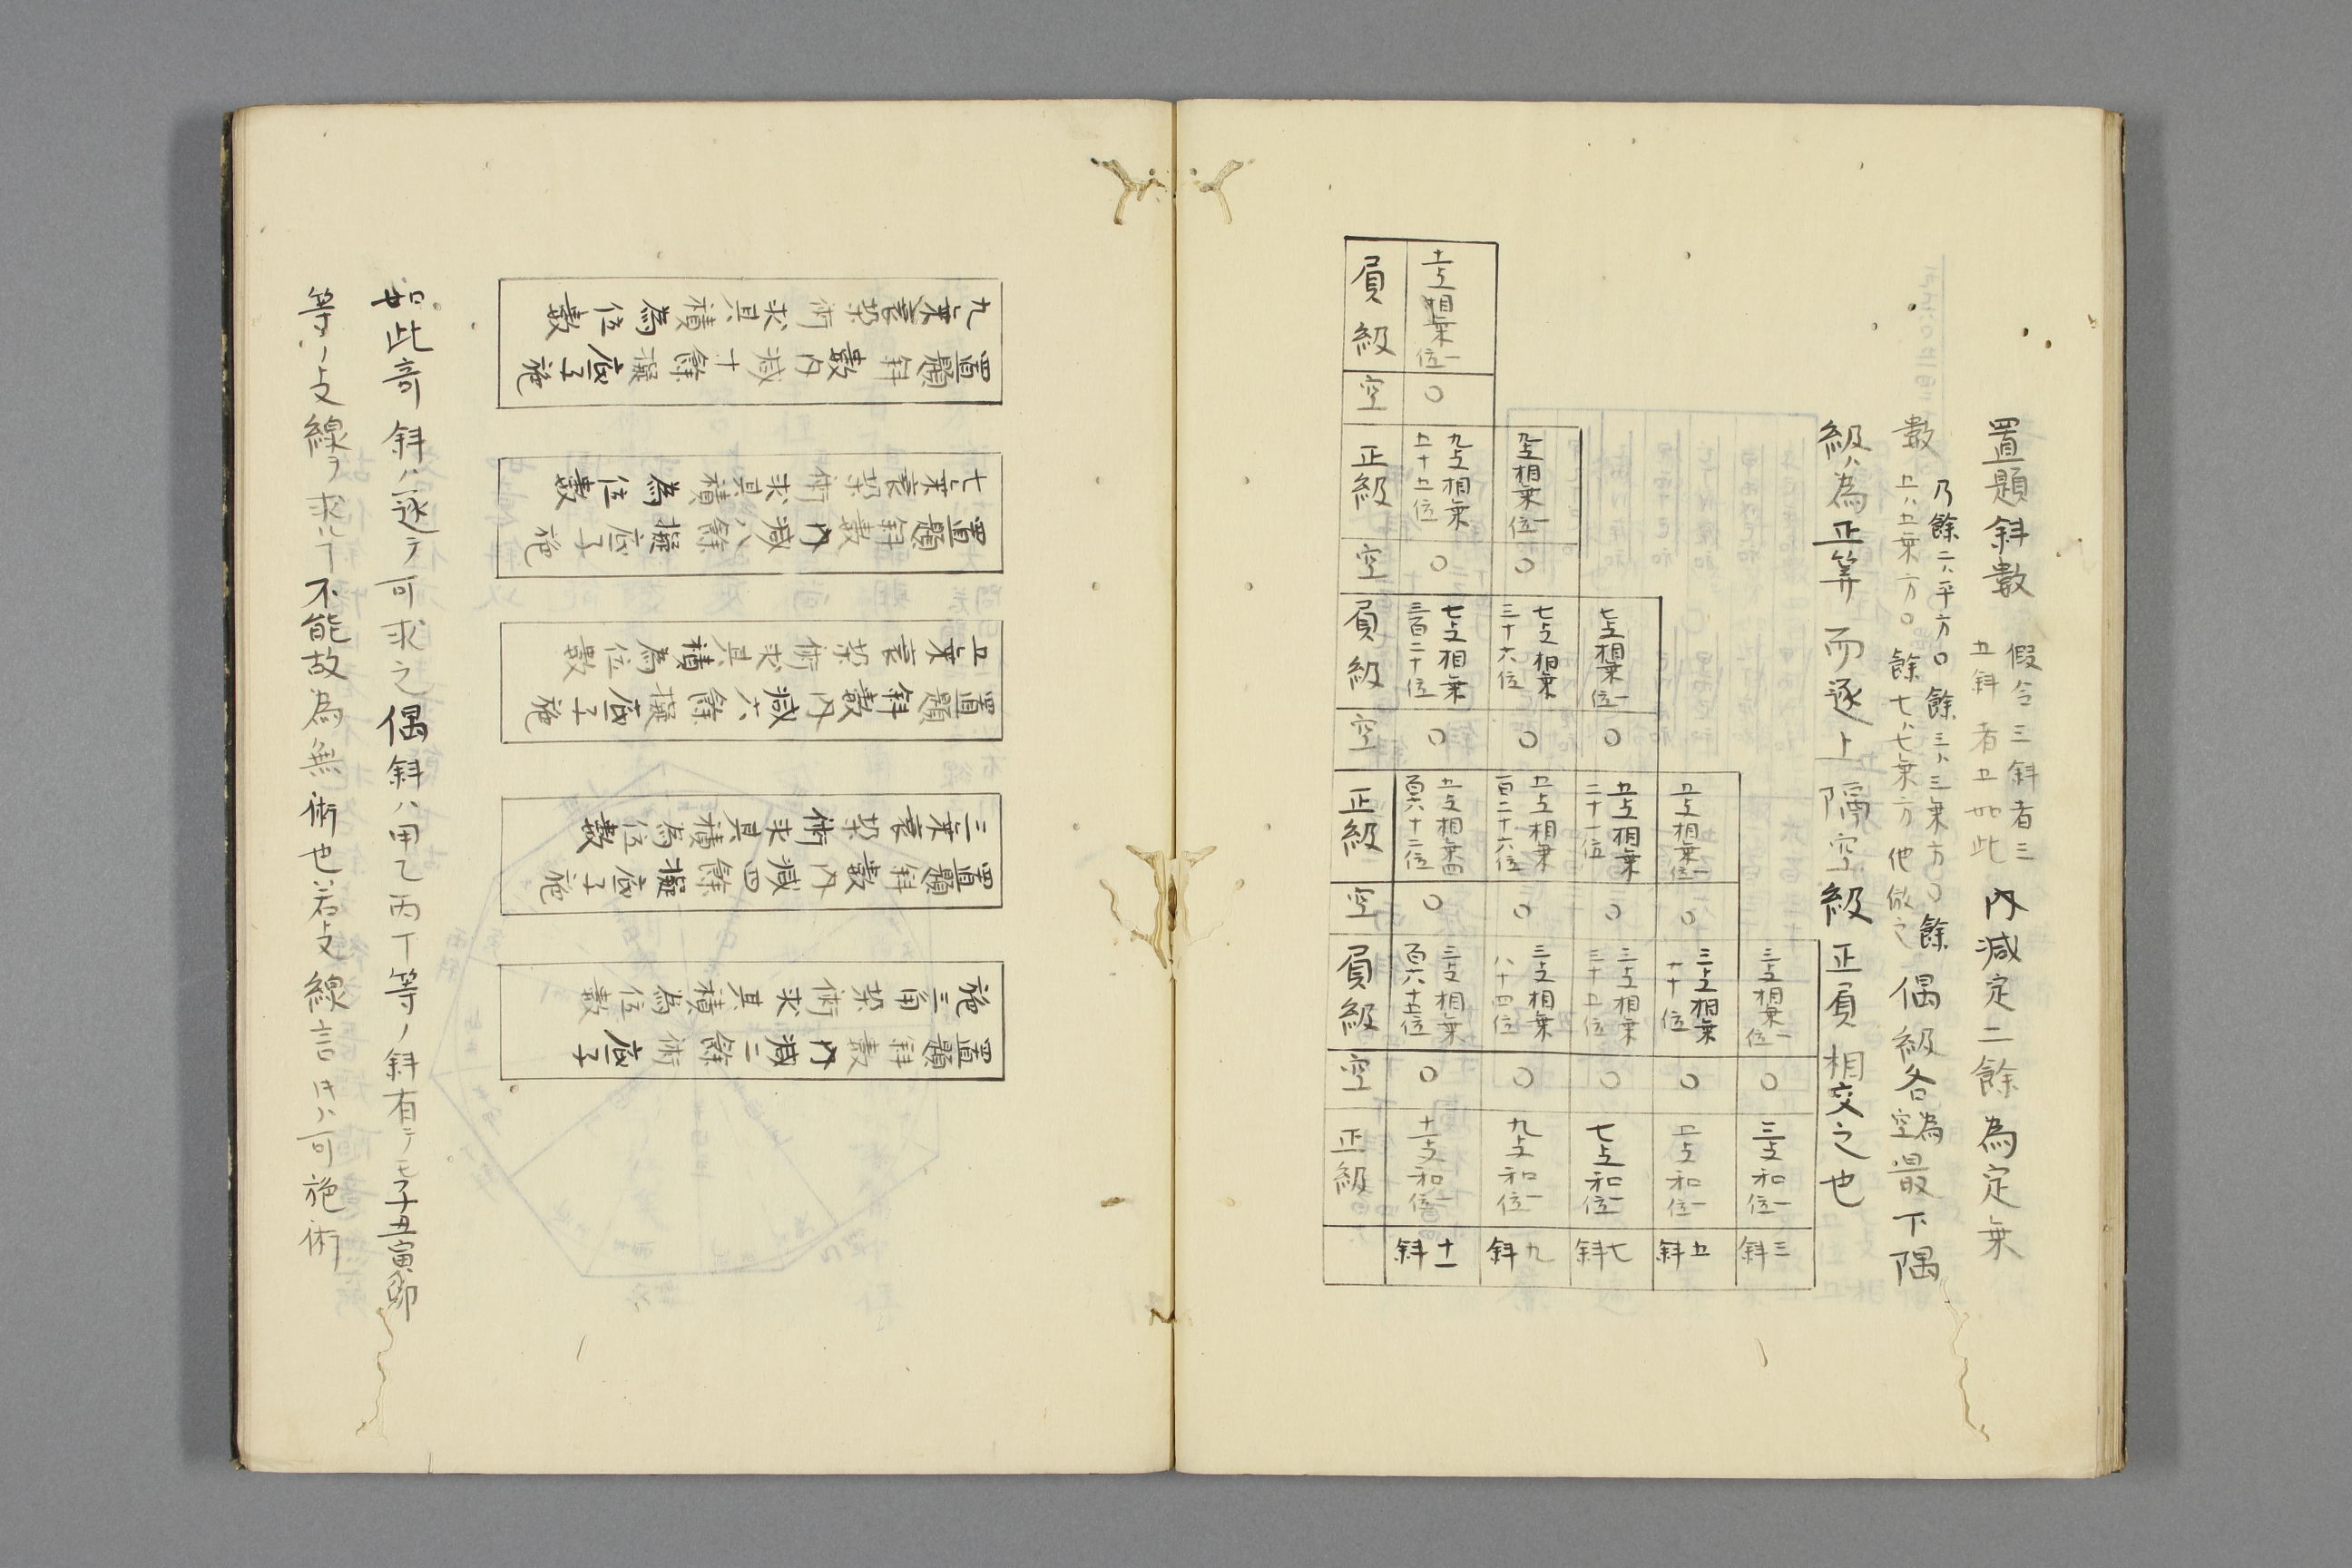 置題斜數 假令三斜者三 五斜者五如此 内減定二餘為定乗
數 乃餘二ハ平方〇餘三ハ三乗方〇餘 五ハ五乗方〇餘七ハ七乗方他倣之 偶級各為空最下隅
級ハ為正算而逐上隔空級正負相交之也
三支相乗一位 〇 三支和一位 三斜
五支相乗一位 〇 三支相乗十位 〇 五支和一位 五斜
七支相乗一位 〇 五支相乗二十一位 〇 三支相乗三十五位 〇 七支和一位 七斜
九支相乗一位 〇 七支相乗三十六位 〇 五支相乗一百二十六位 〇 三支相乗八十四位 〇 九支和一位 九斜
十一支相乗一位 〇 九支相乗五十五位 〇 七支相乗三百二十位 〇 五支相乗四百六十二位 〇 三支相乗百六十五位 〇 十一支和一位 十一斜
負級 空 正級 空 負級 空 正級 空 負級 空 正級
置題斜數内減十餘擬底子施
九乗衰垜術求其積為位數
置題斜數内減八餘擬底子施
七乗衰垜術求其積為位數
置題斜數内減六餘擬底子施
五乗衰垜術求其積為位數
置題斜數内減四餘擬底子施
三乗衰垜術求其積為位數
置題斜數内減二餘術底子
施三角垜術求其積為位數
如此奇斜ハ逐テ可求之偶斜ハ甲乙丙丁等ノ斜有テモ子丑寅卯
等ノ支線ヲ求ルヿ不能故為無術也若支線言トキハ可施術